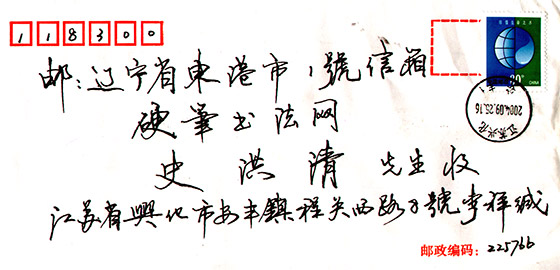 118300
邮:辽宁省東港市1號信箱
硬筆书法网
史洪清先生收
江苏省興化市安丰鎮程关西路8號李祥缄
邮政编码:225766
80
CHINA
2004.09.25.16
江苏兴化